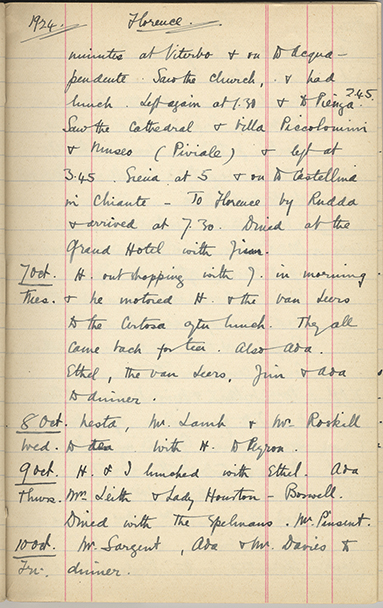 1924. Florence.
minutes at Viterbo & on to Acqua-
pendente. Saw the church, & had
lunch. Left again at 1.30 & to Pienza 2.45.
Saw the Cathedral & Villa Piccolomini
& Museo (Piviale) & left at
3.45. Siena at 5 & on to Castellina
in Chianti – To Florence by Rudda
& arrived at 7.30. Dined at the
Grand Hotel with Jim.
7 Oct. H. out shopping with J. in morning
Tues. & he motored H. & the van Leers
to the Certosa after lunch. They all
came back for tea. Also Ada.
Ethel, the van Leers, Jim & Ada
to dinner.
8 Oct. Nesta, Mr. Lamb & Mr. Roskill
Wed. to tea with H. D
9 Oct. H. & I lunched with Ethel. Ada
Thurs. Mrs Leith & Lady Houston-Boswell.
Dined with the Spelmans. Mr Pinsent.
10 Oct. Mr. Sargent, Ada & Mr. Davies to
Fri. dinner.